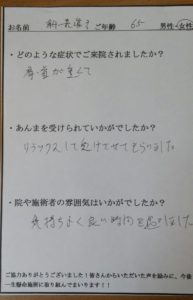 お名前 ご年齢 65 男性・女性
・どのような症状でご来院されましたか？
肩首が重くて
・あんまを受けられていかがでしたか？
リラックスして受けさせてもらいました
・院や施術者の雰囲気はいかがでしたか？
気持ちよく良い時間を過しました
ご協力ありがとうございました！皆さんからいただいた声を励みに、今後
一生懸命施術に取り組んでまいります！！